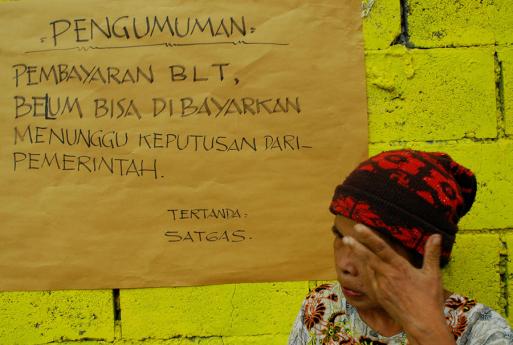 PENGUMUMAN
PEMBAYARAN BLT,
BELUM BISA DIBAYARKAN
MENUNGGU KEPUTUSAN DARI-
PEMERINTAH.
TERTANDA:
SATGAS.